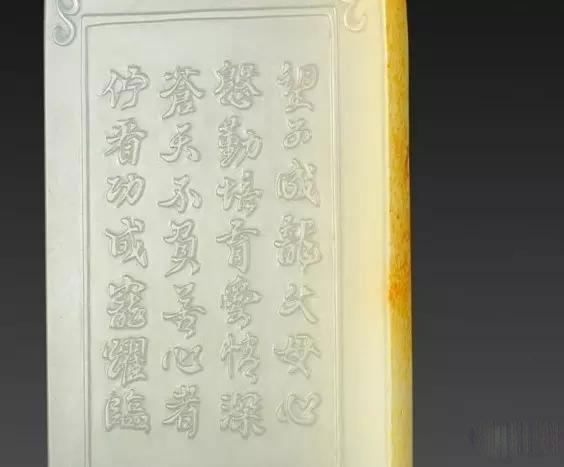 望子成龍父母心
慇勤培育雲情深
蒼天不負善心者
佇看功成寵躍臨